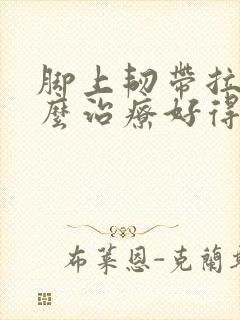 脚上韧帶拉
麼治療好得
布萊恩-克蘭